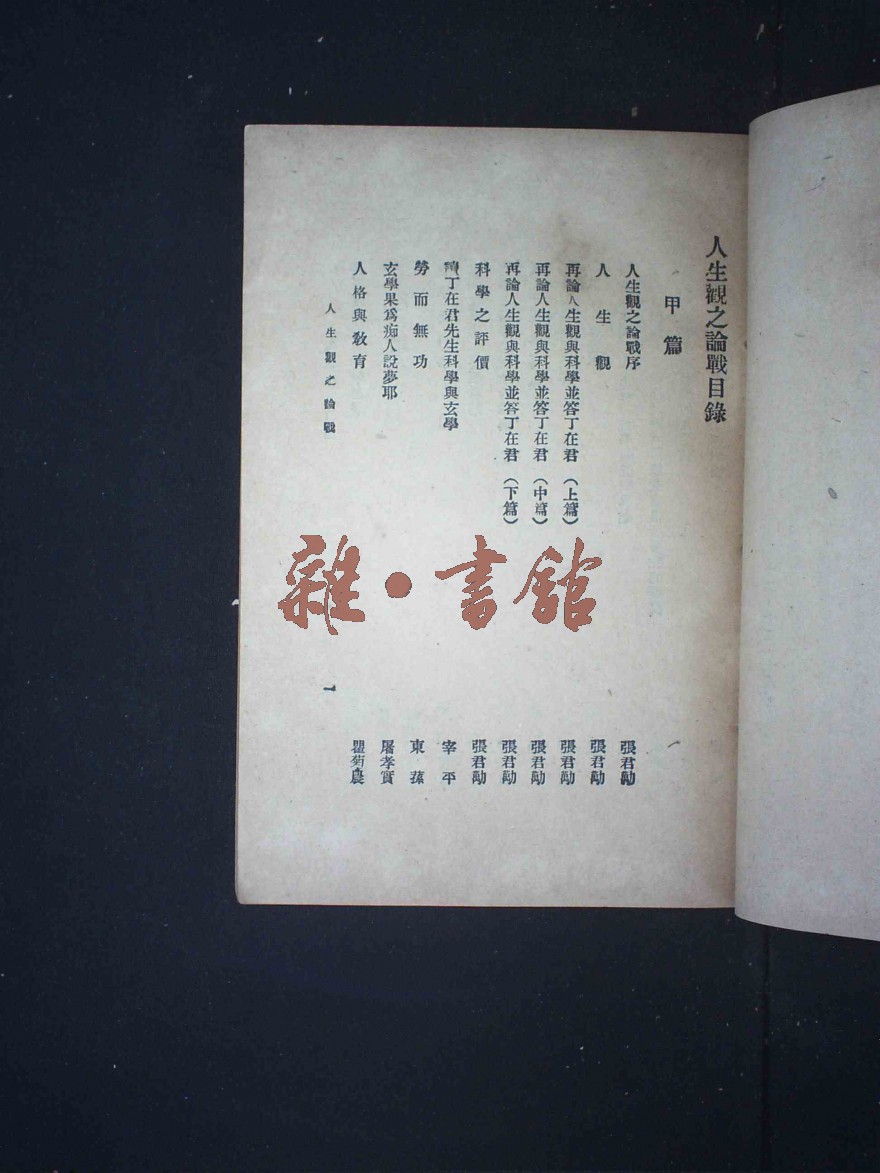 人生觀之論戰目錄
甲篇
人生觀之論戰序 張君勱
人生觀 張君勱
再論人生觀與科學並答丁在君(上篇) 張君勱
再論人生觀與科學並答丁在君(中篇) 張君勱
再論人生觀與科學並答丁在君(下篇) 張君勱
科學之評價 張君勱
讀丁在君先生科學與玄學 宰平
勞而無功 東蓀
玄學果爲痴人說夢耶 屠孝實
人格與敎育 瞿菊農
人生觀之論戰 一
雜·書館